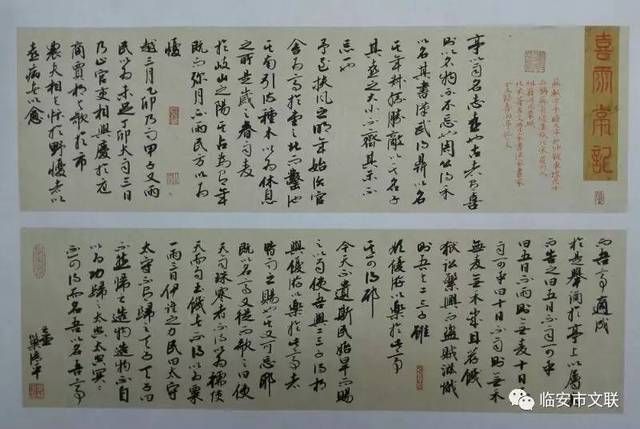 喜雨亭記
亭以雨名志喜也古者有喜
則以名物示不忘也周公得禾
以名其書漢武得鼎以名
其年叔孫勝敵以名其子
其喜之大小不齊其示不
忘一也
予至扶風之明年始治官
舍為亭於堂之北而鑿池
其南引流種木以為休息
之所是歲之春雨麥
於岐山之陽其占為有年
既而彌月不雨民方以為
憂
越三月乙卯乃雨甲子又雨
民以為未足丁卯大雨三日
乃止官吏相與慶於庭
商賈相與歌於市
農夫相與忭於野憂者以
喜病者以愈
而吾亭適成
於是舉酒於亭上以屬客
而告之曰五日不雨可乎
曰五日不雨則無麥十日不
雨可乎曰十日不雨則無禾
無麥無禾歲且荐饑
獄訟繁興而盜賊滋熾
則吾與二三子雖
欲優游以樂於此亭
其可得耶
今天不遺斯民始旱而賜
之以雨使吾與二三子得相
與優游以樂於此亭者
皆雨之賜也其又可忘耶
既以名亭又從而歌之曰使
天而雨珠寒者不得以為襦使
天而雨玉饑者不得以為粟
一雨三日伊誰之力民曰太守
太守不有歸之天子天子曰
不然歸之造物造物不自
以為功歸之太空太空冥冥
不可得而名吾以名吾亭
临安市文联